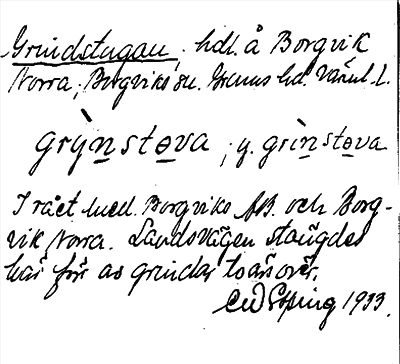 Grindstugan, hdl. å Borgvik
Norra, Borgviks sn. Grums hd. Värml. l.
grỳnstova ; y. grìnstova
I rået med. Borgviks AB. och Borg-
vik Norra. Landsvägen stängdes
här för av grindar tvärsöver.
1933